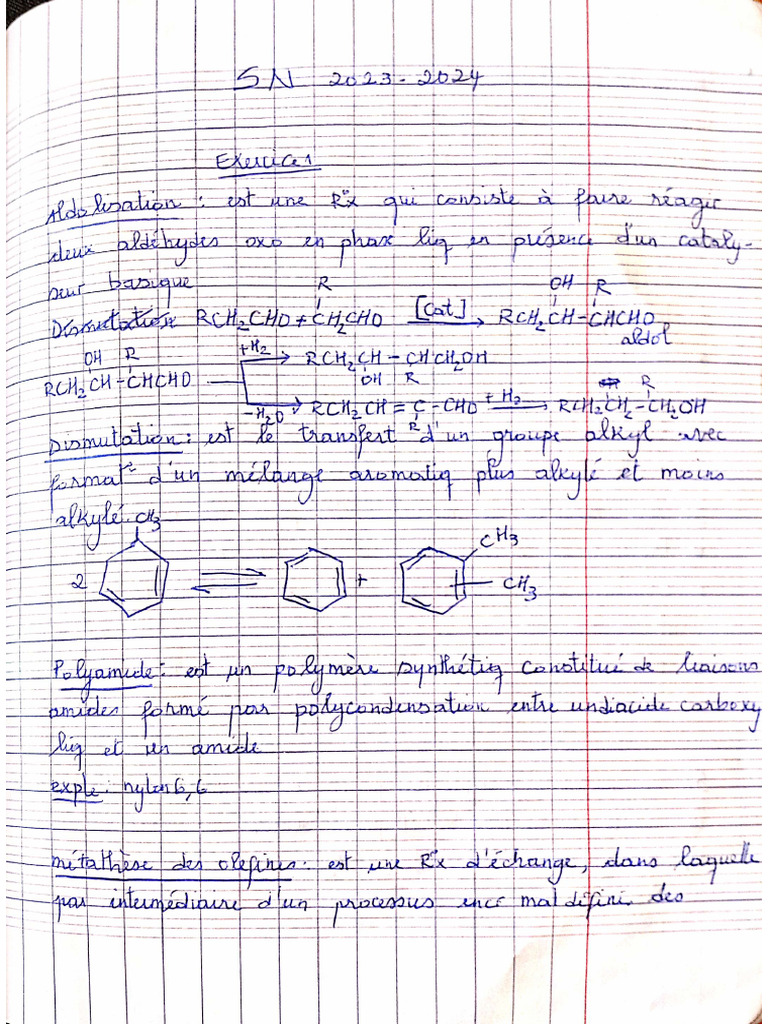 SN 2023-2024
Exercice 1
Aldolisation : est une Rx° qui consiste à faire réagir
deux aldéhydes oxo en phase liq en présence d'un cataly-
seur basique
R OH R
Dismutation RCH2CHO + CH2CHO [Cat.] RCH2CH-CHCHO
aldol
OH R +H2 RCH2CH - CHCH2OH
RCH2CH-CHCHO OH R
-H2O RCH2CH = C - CHO +H2 RCH2CH2-CHCH2OH
R R
Dismutation : est le transfert d'un groupe alkyl avec
format° d'un mélange aromatiq plus alkylé et moins
alkylé.
CH3 CH3
2 + CH3
Polyamide : est un polymère synthétiq constitué de liaisons
amides formé par polycondensation entre un diacide carboxy
liq et un amide
exple : nylon 6,6
métathèse des oléfines : est une Rx° d'échange, dans laquelle
par intermédiaire d'un processus enc mal défini des